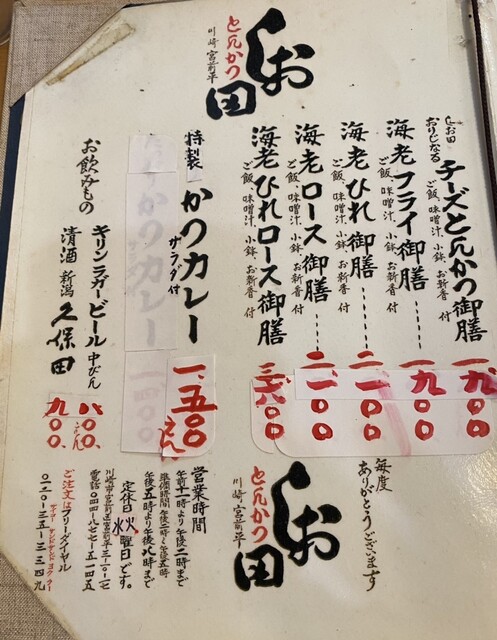 とんかつ
しお田
川崎 宮前平
しお田
おりじなる
チーズとんかつ御膳
ご飯、味噌汁、小鉢、お新香 付
一、九〇〇
海老フライ御膳
ご飯、味噌汁、小鉢、お新香 付
一、九〇〇
海老ひれ御膳
ご飯、味噌汁、小鉢、お新香 付
二、一〇〇
海老ロース御膳
ご飯、味噌汁、小鉢、お新香 付
二、一〇〇
海老ひれロース御膳
ご飯、味噌汁、小鉢、お新香 付
特製
かつカレー
サラダ付
一、五〇〇
えん
かつカレー
お飲みもの
キリンラガービール 中びん
八〇〇
えん
清酒 新潟 久保田
九〇〇
毎度
ありがとうございます
とんかつ
しお田
川崎 宮前平
営業時間
午前十一時より午後二時まで
準備時間 午後二時〜午後五時
午後五時より午後八時まで
定休日 水火曜日どす。
川崎市宮前区宮前平三-一〇-一七
電話〇四四-八七七-五一四五
ご注文はフリーダイヤル
〇一二〇-三五-三三四九